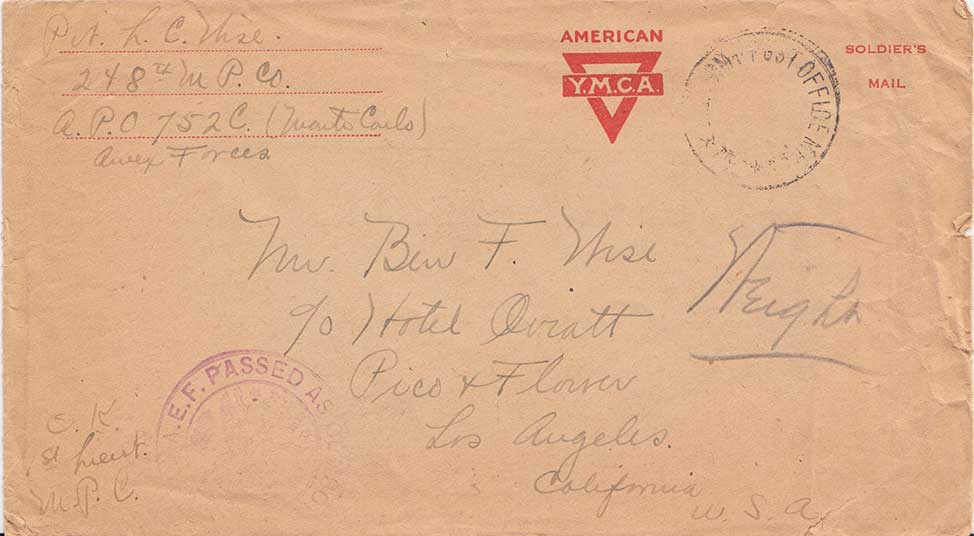 Pvt. L. C. Wise.
248th M P. Co.
A. P. O 752 C. (Monte Carlo)
Amex Forces
AMERICAN
Y.M.C.A.
POST OFFICE
SOLDIER'S
MAIL
Mr. Ben F. Wise
c/o Hotel Oviatt
Pico & Flower
Los Angeles.
California
U. S. A.
A.E.F. PASSED AS
O. K.
1st Lieut.
M. P. C.